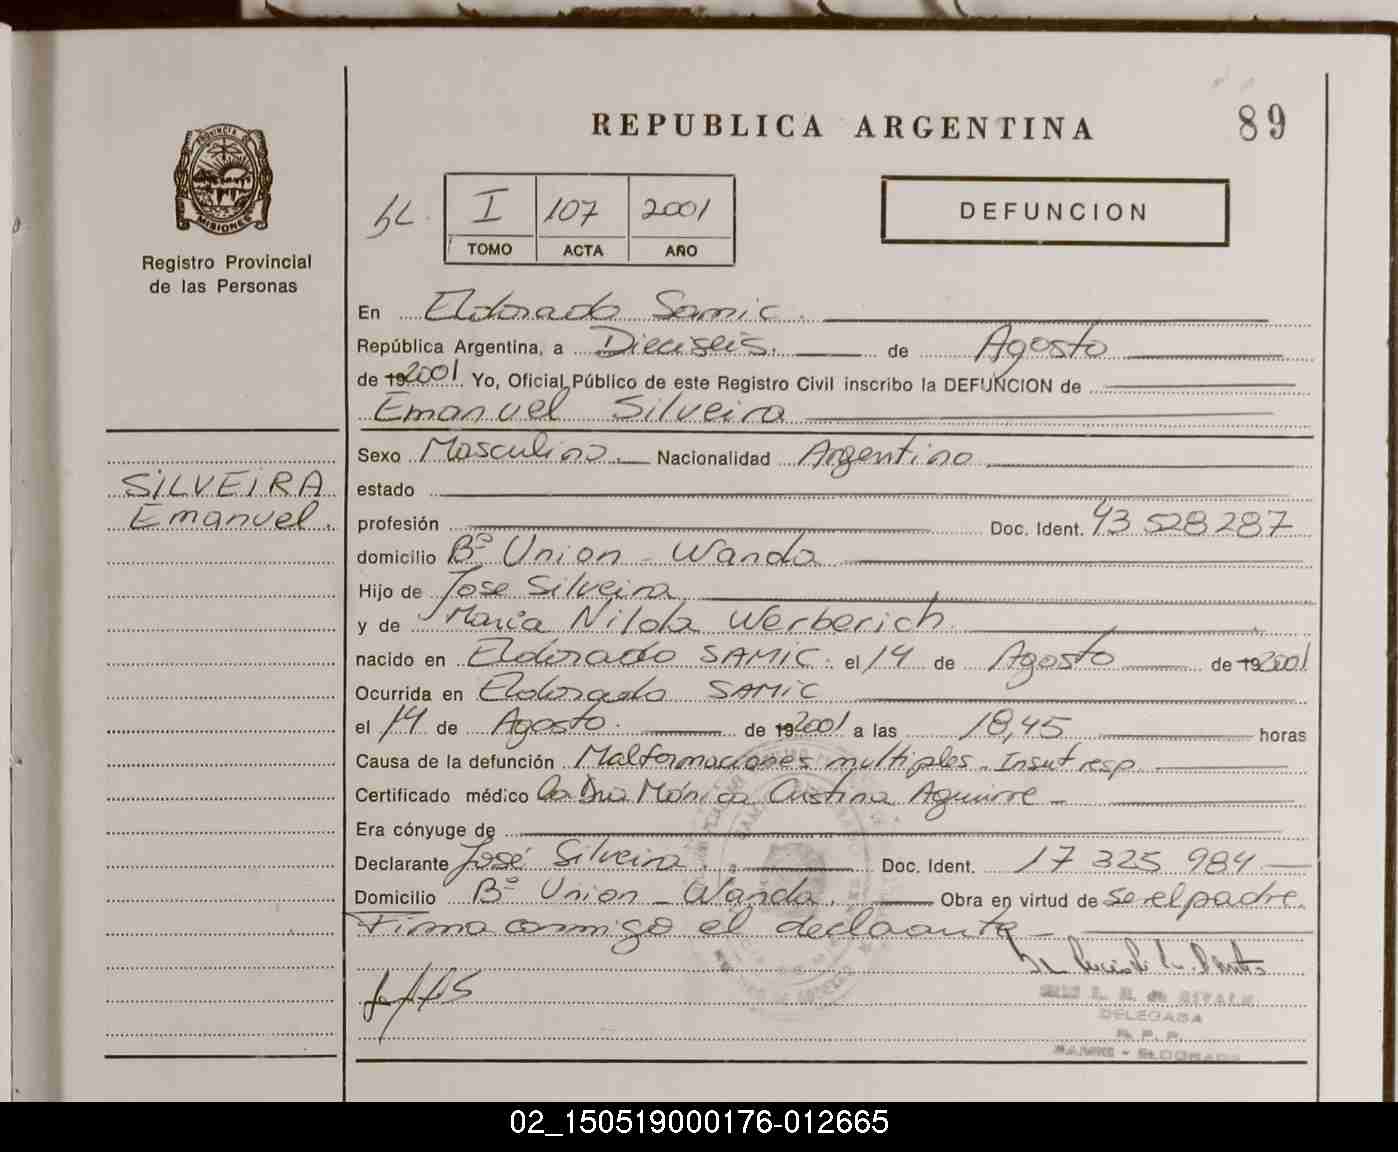 REPUBLICA ARGENTINA
89
PROVINCIA DE
MISIONES
Registro Provincial
de las Personas
I 107 2001
TOMO ACTA AÑO
DEFUNCION
En Eldorado Samic.
República Argentina, a Dieciseis. de Agosto
de 192001 Yo, Oficial Público de este Registro Civil inscribo la DEFUNCION de
Emanuel Silveira
SILVEIRA
Emanuel.
Sexo Masculino. Nacionalidad Argentino
estado
profesión Doc. Ident. 43 528 287
domicilio Bº Union - Wanda
Hijo de Jose Silveira
y de Maria Nilda Werberich.
nacido en Eldorado SAMIC. el 14 de Agosto de 192001
Ocurrida en Eldorado SAMIC
el 14 de Agosto. de 192001 a las 18,45 horas
Causa de la defunción Malformaciones multiples - Insuf resp
Certificado médico la Dra Mónica Cristina Aguirre -
Era cónyuge de
Declarante José Silveira. Doc. Ident. 17 325 984
Domicilio Bº Union - Wanda. Obra en virtud de se el padre.
Firma conmigo el declarante -
DELEGADA
R. P. P.
SAMIC - ELDORADO
02_150519000176-012665